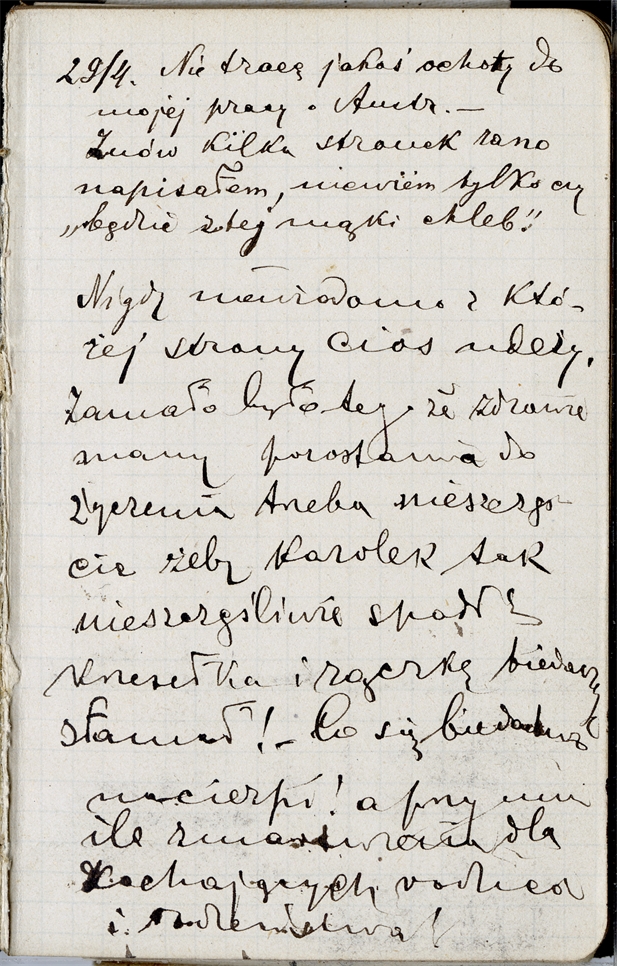 29/4. Nie tracę jakoś ochoty do
mojej pracy o Austr. —
Znów kilka stronek rano
napisałem, niewiem tylko czy
„będzie z tej mąki chleb".
Nigdy niewiadomo z któ-
rej strony cios uderzy.
Zamało było tego że zdrowie
mamy pozostawia do
życzenia trzeba nieszczęś-
cia żeby Karolek tak
nieszczęśliwie spadł z
krzesełka i rączkę biedaczek
złamał! – Co się biedactwo
nacierpi! a przy nim
ile zmartwienia dla
kochających rodzica
i rodzeństwa!